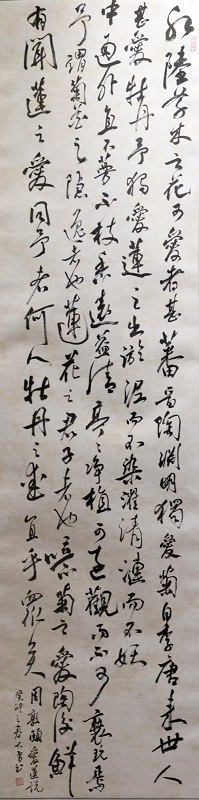 水陸草木之花可愛者甚蕃晉陶淵明獨愛菊自李唐來世人
甚愛牡丹予獨愛蓮之出淤泥而不染濯清漣而不妖
中通外直不蔓不枝香遠益清亭々淨植可遠觀而不可褻玩焉
予謂菊花之隱逸者也蓮花之君子者也噫菊之愛陶後鮮
有聞蓮之愛同予者何人牡丹之愛宜乎眾矣
周敦頤愛蓮說
癸卯之春